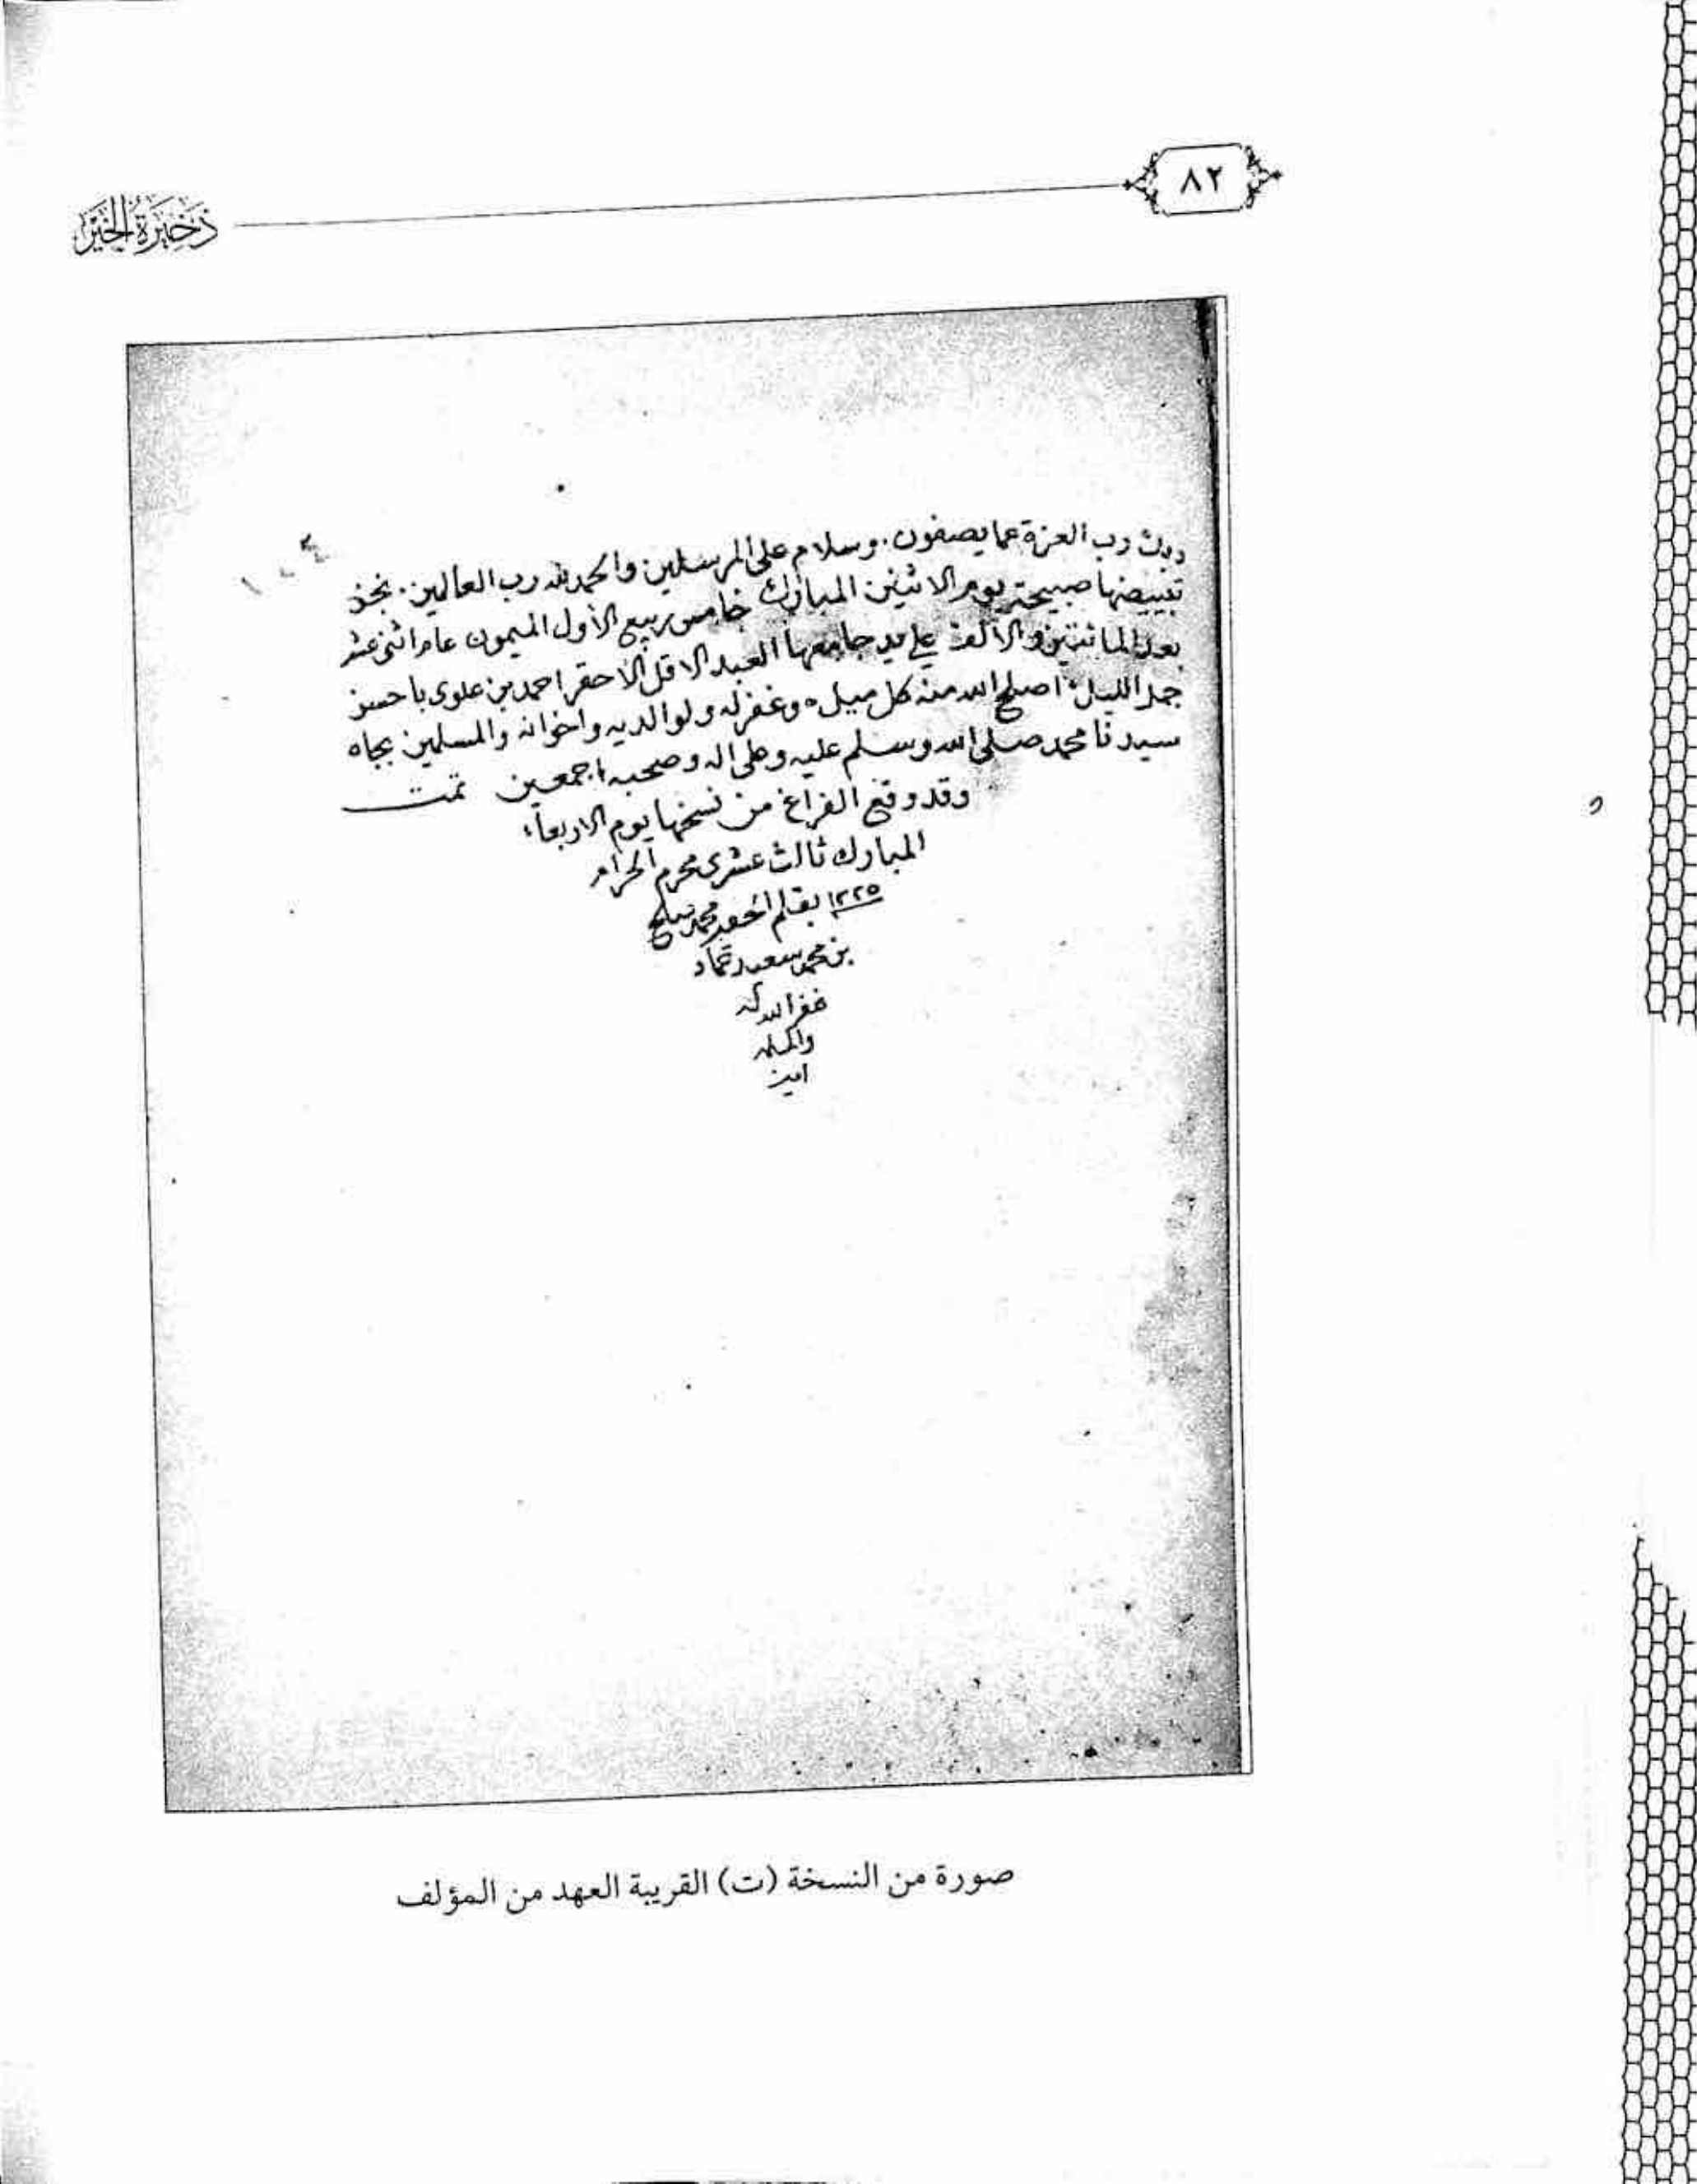 ٨٢
ذَخِيرَةُ الخَيْرِ
ربك رب العزة عما يصفون. وسلام على المرسلين والحمد لله رب العالمين. نجز
تبييضها صبيحة يوم الاثنين المبارك خامس ربيع الأول الميمون عام اثنى عشر
بعد المائتين والألف على يد جامعها العبد الاقل الاحقر احمد بن علوى باحسن
جمل الليل اصلح الله منه كل ميل وغفر له ولوالديه واخوانه والمسلمين بجاه
سيدنا محمد صلى الله وسلم عليه وعلى اله وصحبه اجمعين تمت
وقد وقع الفراغ من نسخها يوم الاربعاء
المبارك ثالث عشرى محرم الحرام
١٢٢٥ بقلم محمد
بن محمد سعيد
غفر الله له
امين
صورة من النسخة (ت) القريبة العهد من المؤلف